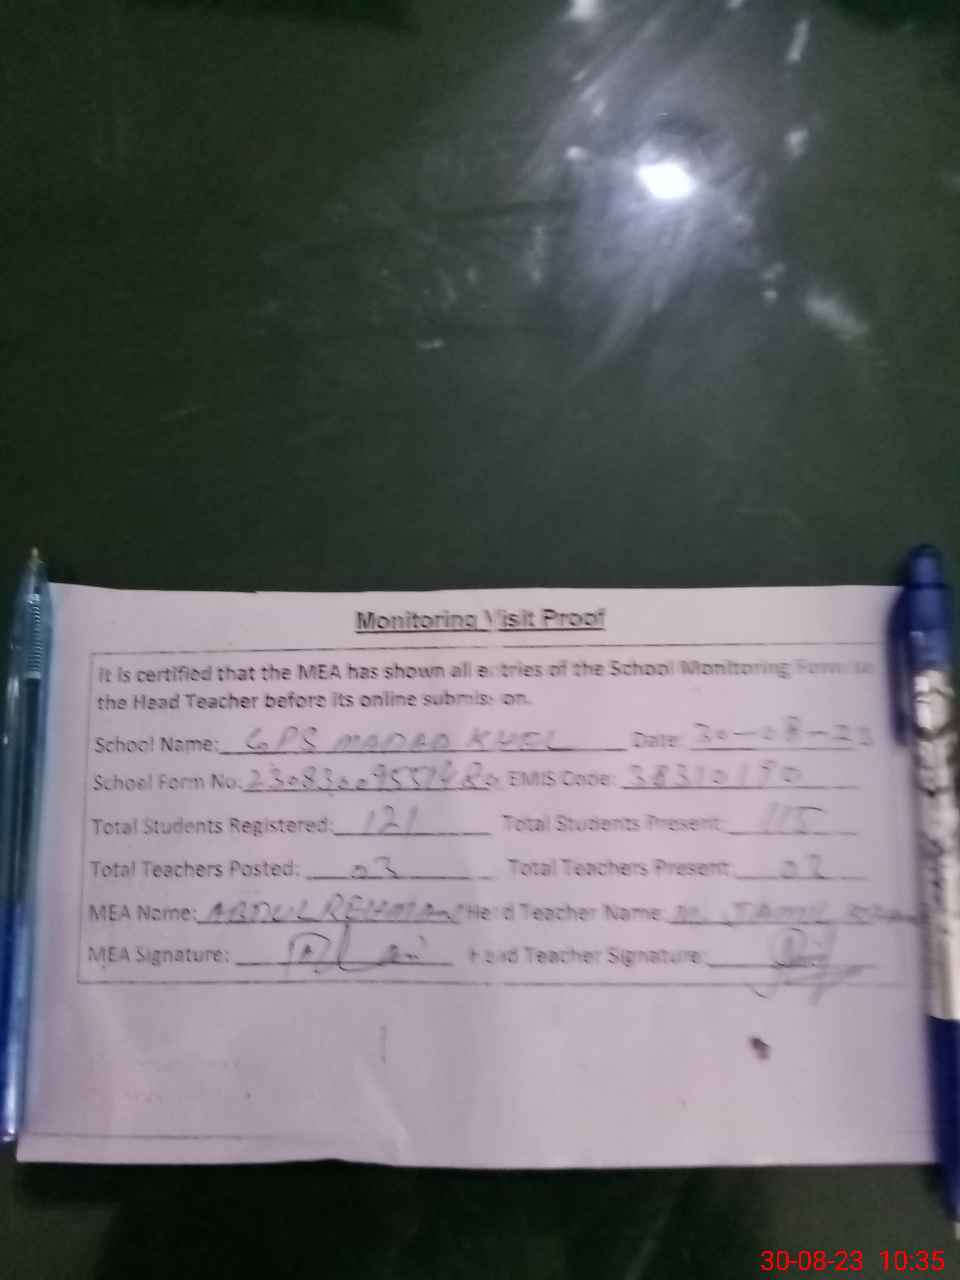 Monitoring Visit Proof
It is certified that the MEA has shown all entries of the School Monitoring Form to
the Head Teacher before its online submission.
School Name: GPS MADAD KHEL Date: 30-08-23
School Form No: EMIS Code: 38310190
Total Students Registered: 121 Total Students Present: 115
Total Teachers Posted: 03 Total Teachers Present:
MEA Name: ABDUL REHMAN Head Teacher Name: M. JAMIL
MEA Signature: Head Teacher Signature:
30-08-23 10:35